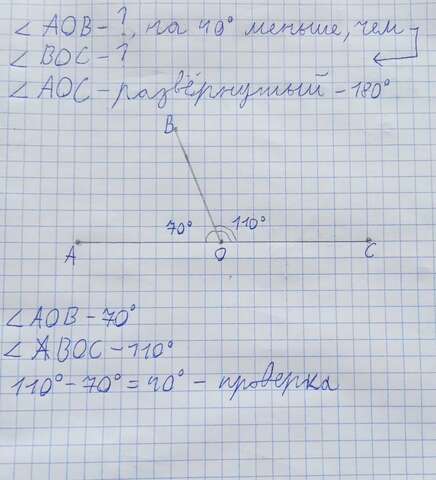 ∠AOB - ?, на 40° меньше, чем
∠BOC - ?
∠AOC - развёрнутый - 180°
B
70° 110°
A O C
∠AOB - 70°
∠BOC - 110°
110° - 70° = 40° - проверка